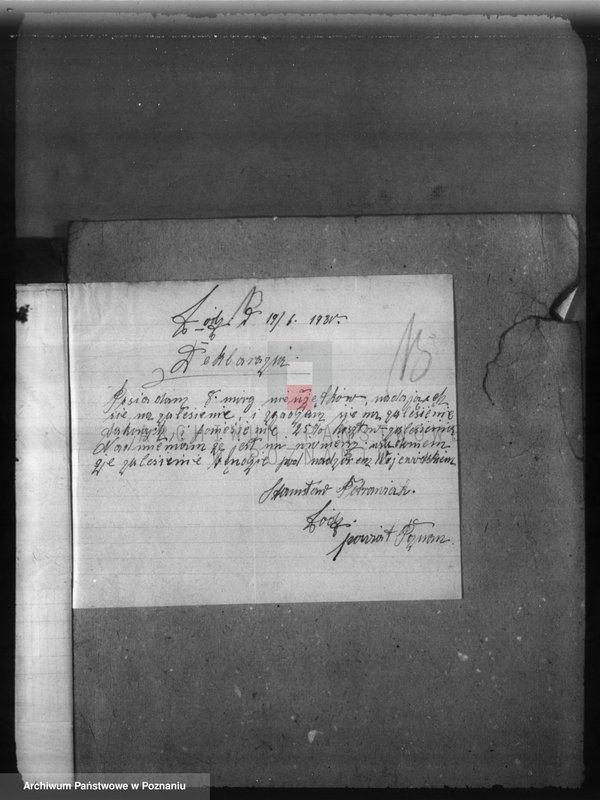 Łódź D 19/6. 1930.
15
Deklaracja
Posiadam 8. mórg nieużytków, nadających
się na zalesienie, i zgadzam się na zalesienie
takowych, i poniesienie 25% kosztów zalesienia
Nadmieniam że jest mi
że zalesienie będzie pod nadzorem Wojewódzkiem
Stanisław Pietrowiak.
Łódź.
powiat Poznań.
Archiwum Państwowe w Poznaniu